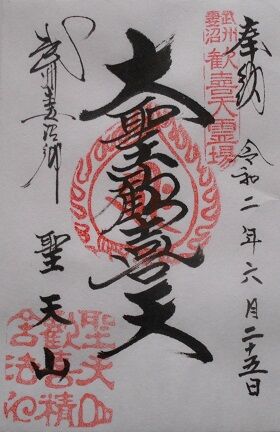 奉納
武州
妻沼
歓喜天霊場
令和二年六月二十五日
大聖歓喜天
武州妻沼郷
聖天山
聖天山
歓喜精
舎法印